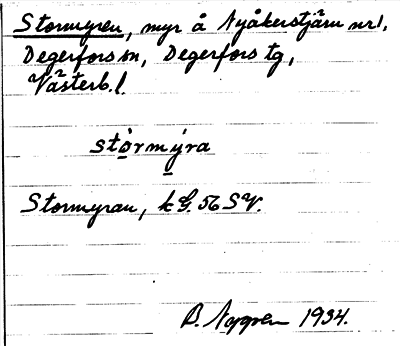 Stormyren, myr å Nyåkerstjärn nr 1,
Degerfors sn, Degerfors tg,
Västerb. l.
stòrmýra
Stormyran, k G. 56 SV.
B. Nygren 1934.